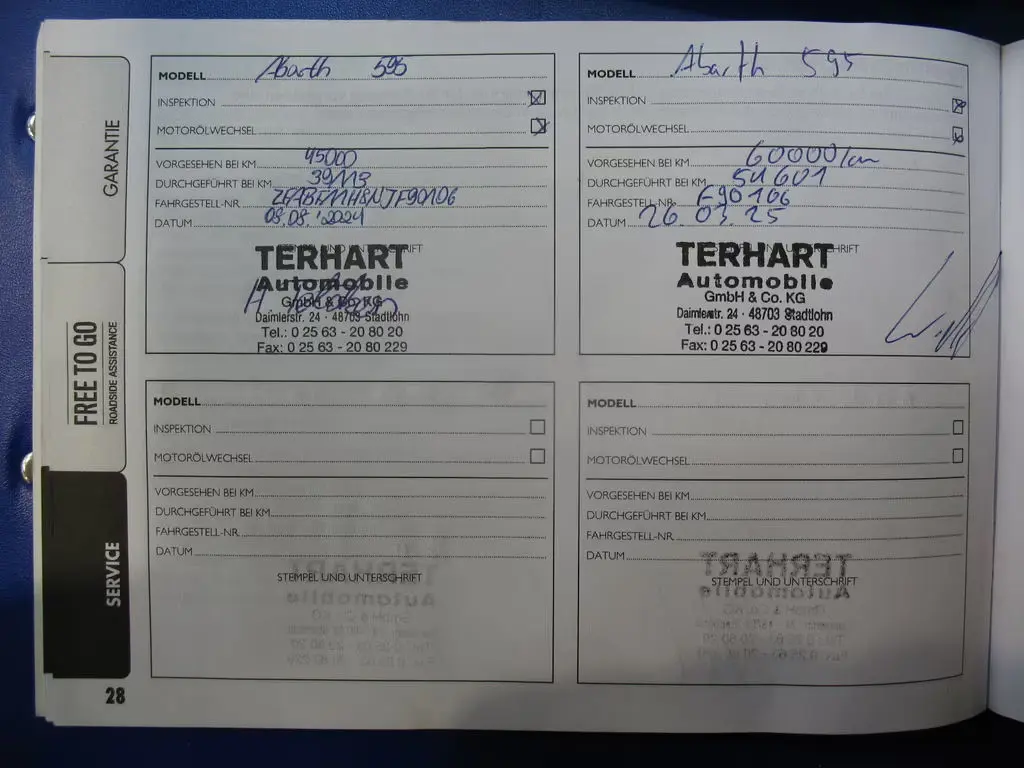 GARANTIE
FREE TO GO
ROADSIDE ASSISTANCE
SERVICE
28
MODELL Abarth 595
INSPEKTION
MOTORÖLWECHSEL
VORGESEHEN BEI KM 45000
DURCHGEFÜHRT BEI KM 39113
FAHRGESTELL-NR.
DATUM 08.08.'2024
STEMPEL UND UNTERSCHRIFT
TERHART
Automobile
GmbH & Co. KG
Daimlerstr. 24 · 48703 Stadtlohn
Tel.: 0 25 63 - 20 80 20
Fax: 0 25 63 - 20 80 229
MODELL Abarth 595
INSPEKTION
MOTORÖLWECHSEL
VORGESEHEN BEI KM 60000 km
DURCHGEFÜHRT BEI KM 54601
FAHRGESTELL-NR. F90106
DATUM 26.03.25
STEMPEL UND UNTERSCHRIFT
TERHART
Automobile
GmbH & Co. KG
Daimlerstr. 24 · 48703 Stadtlohn
Tel.: 0 25 63 - 20 80 20
Fax: 0 25 63 - 20 80 229
MODELL
INSPEKTION
MOTORÖLWECHSEL
VORGESEHEN BEI KM
DURCHGEFÜHRT BEI KM
FAHRGESTELL-NR.
DATUM
STEMPEL UND UNTERSCHRIFT
MODELL
INSPEKTION
MOTORÖLWECHSEL
VORGESEHEN BEI KM
DURCHGEFÜHRT BEI KM
FAHRGESTELL-NR.
DATUM
STEMPEL UND UNTERSCHRIFT